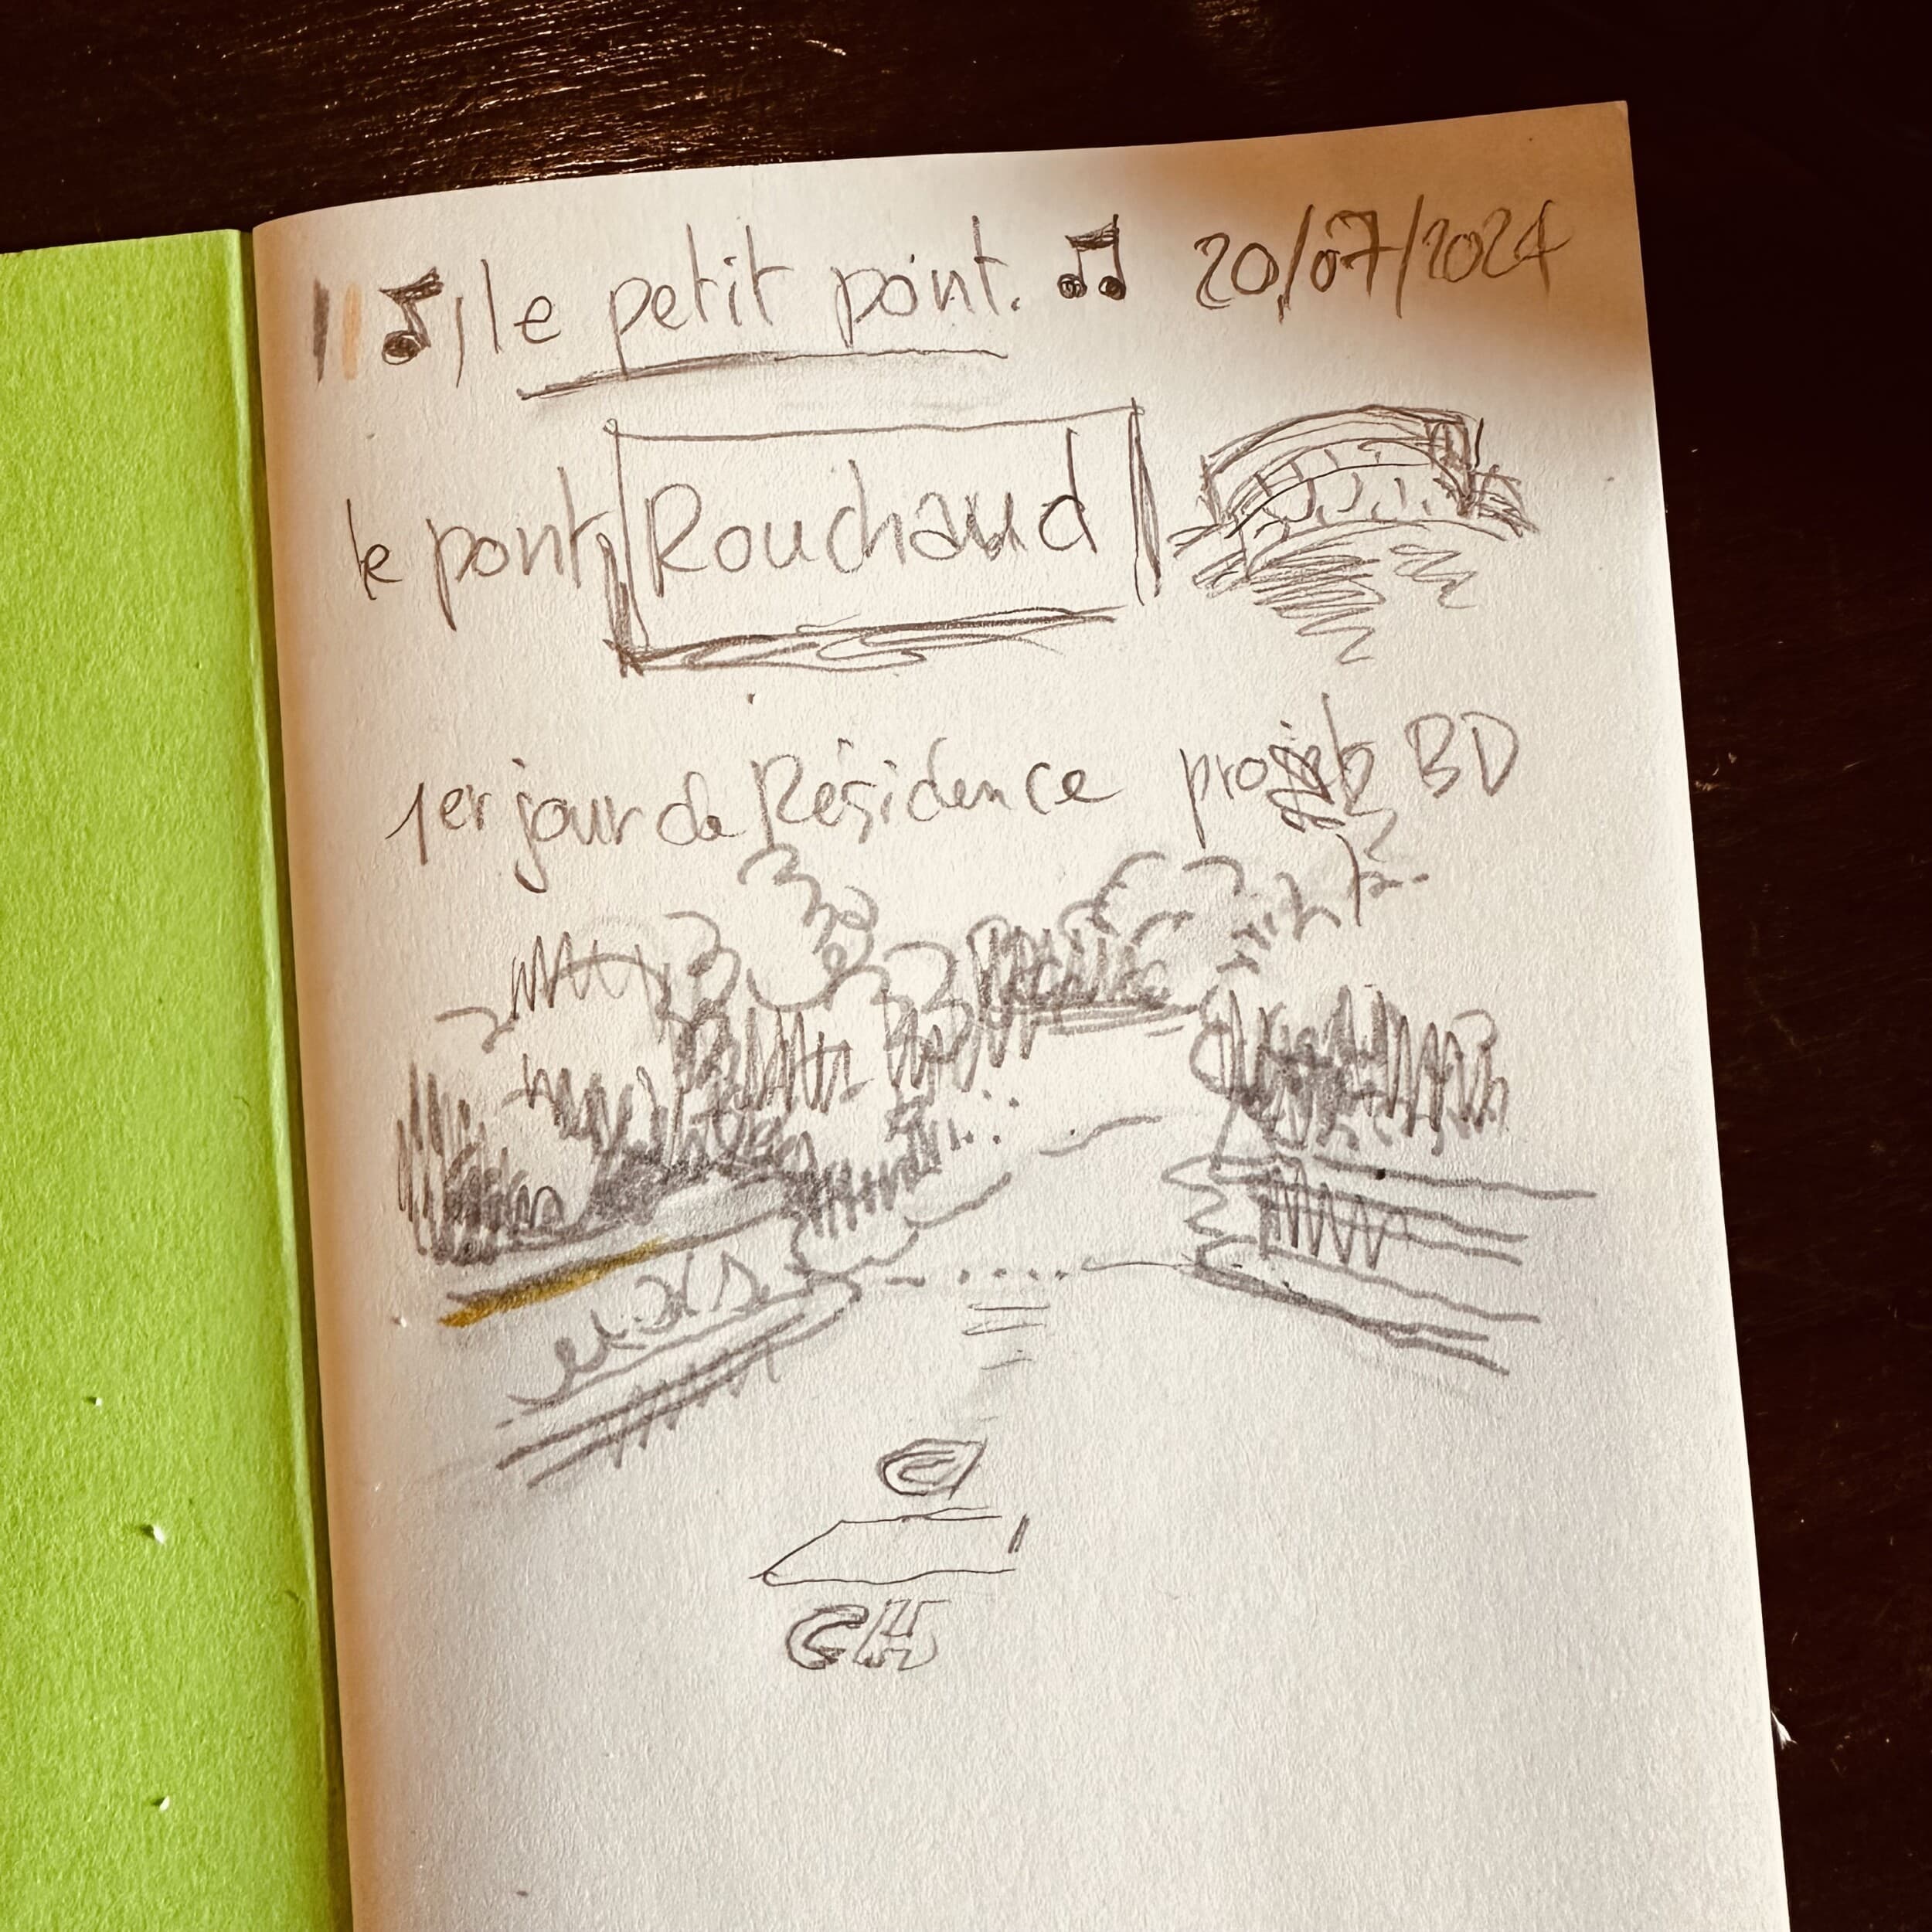 le petit point. 20/07/2024
le pont Rouchaud
1er jour de Résidence projet BD
CH